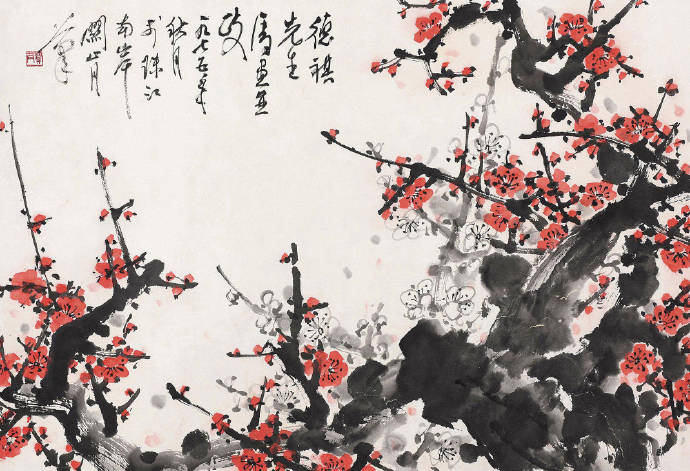 德祺
先生
属画並
政
一九七五年
秋月
于珠江
南岸
關山月
筆